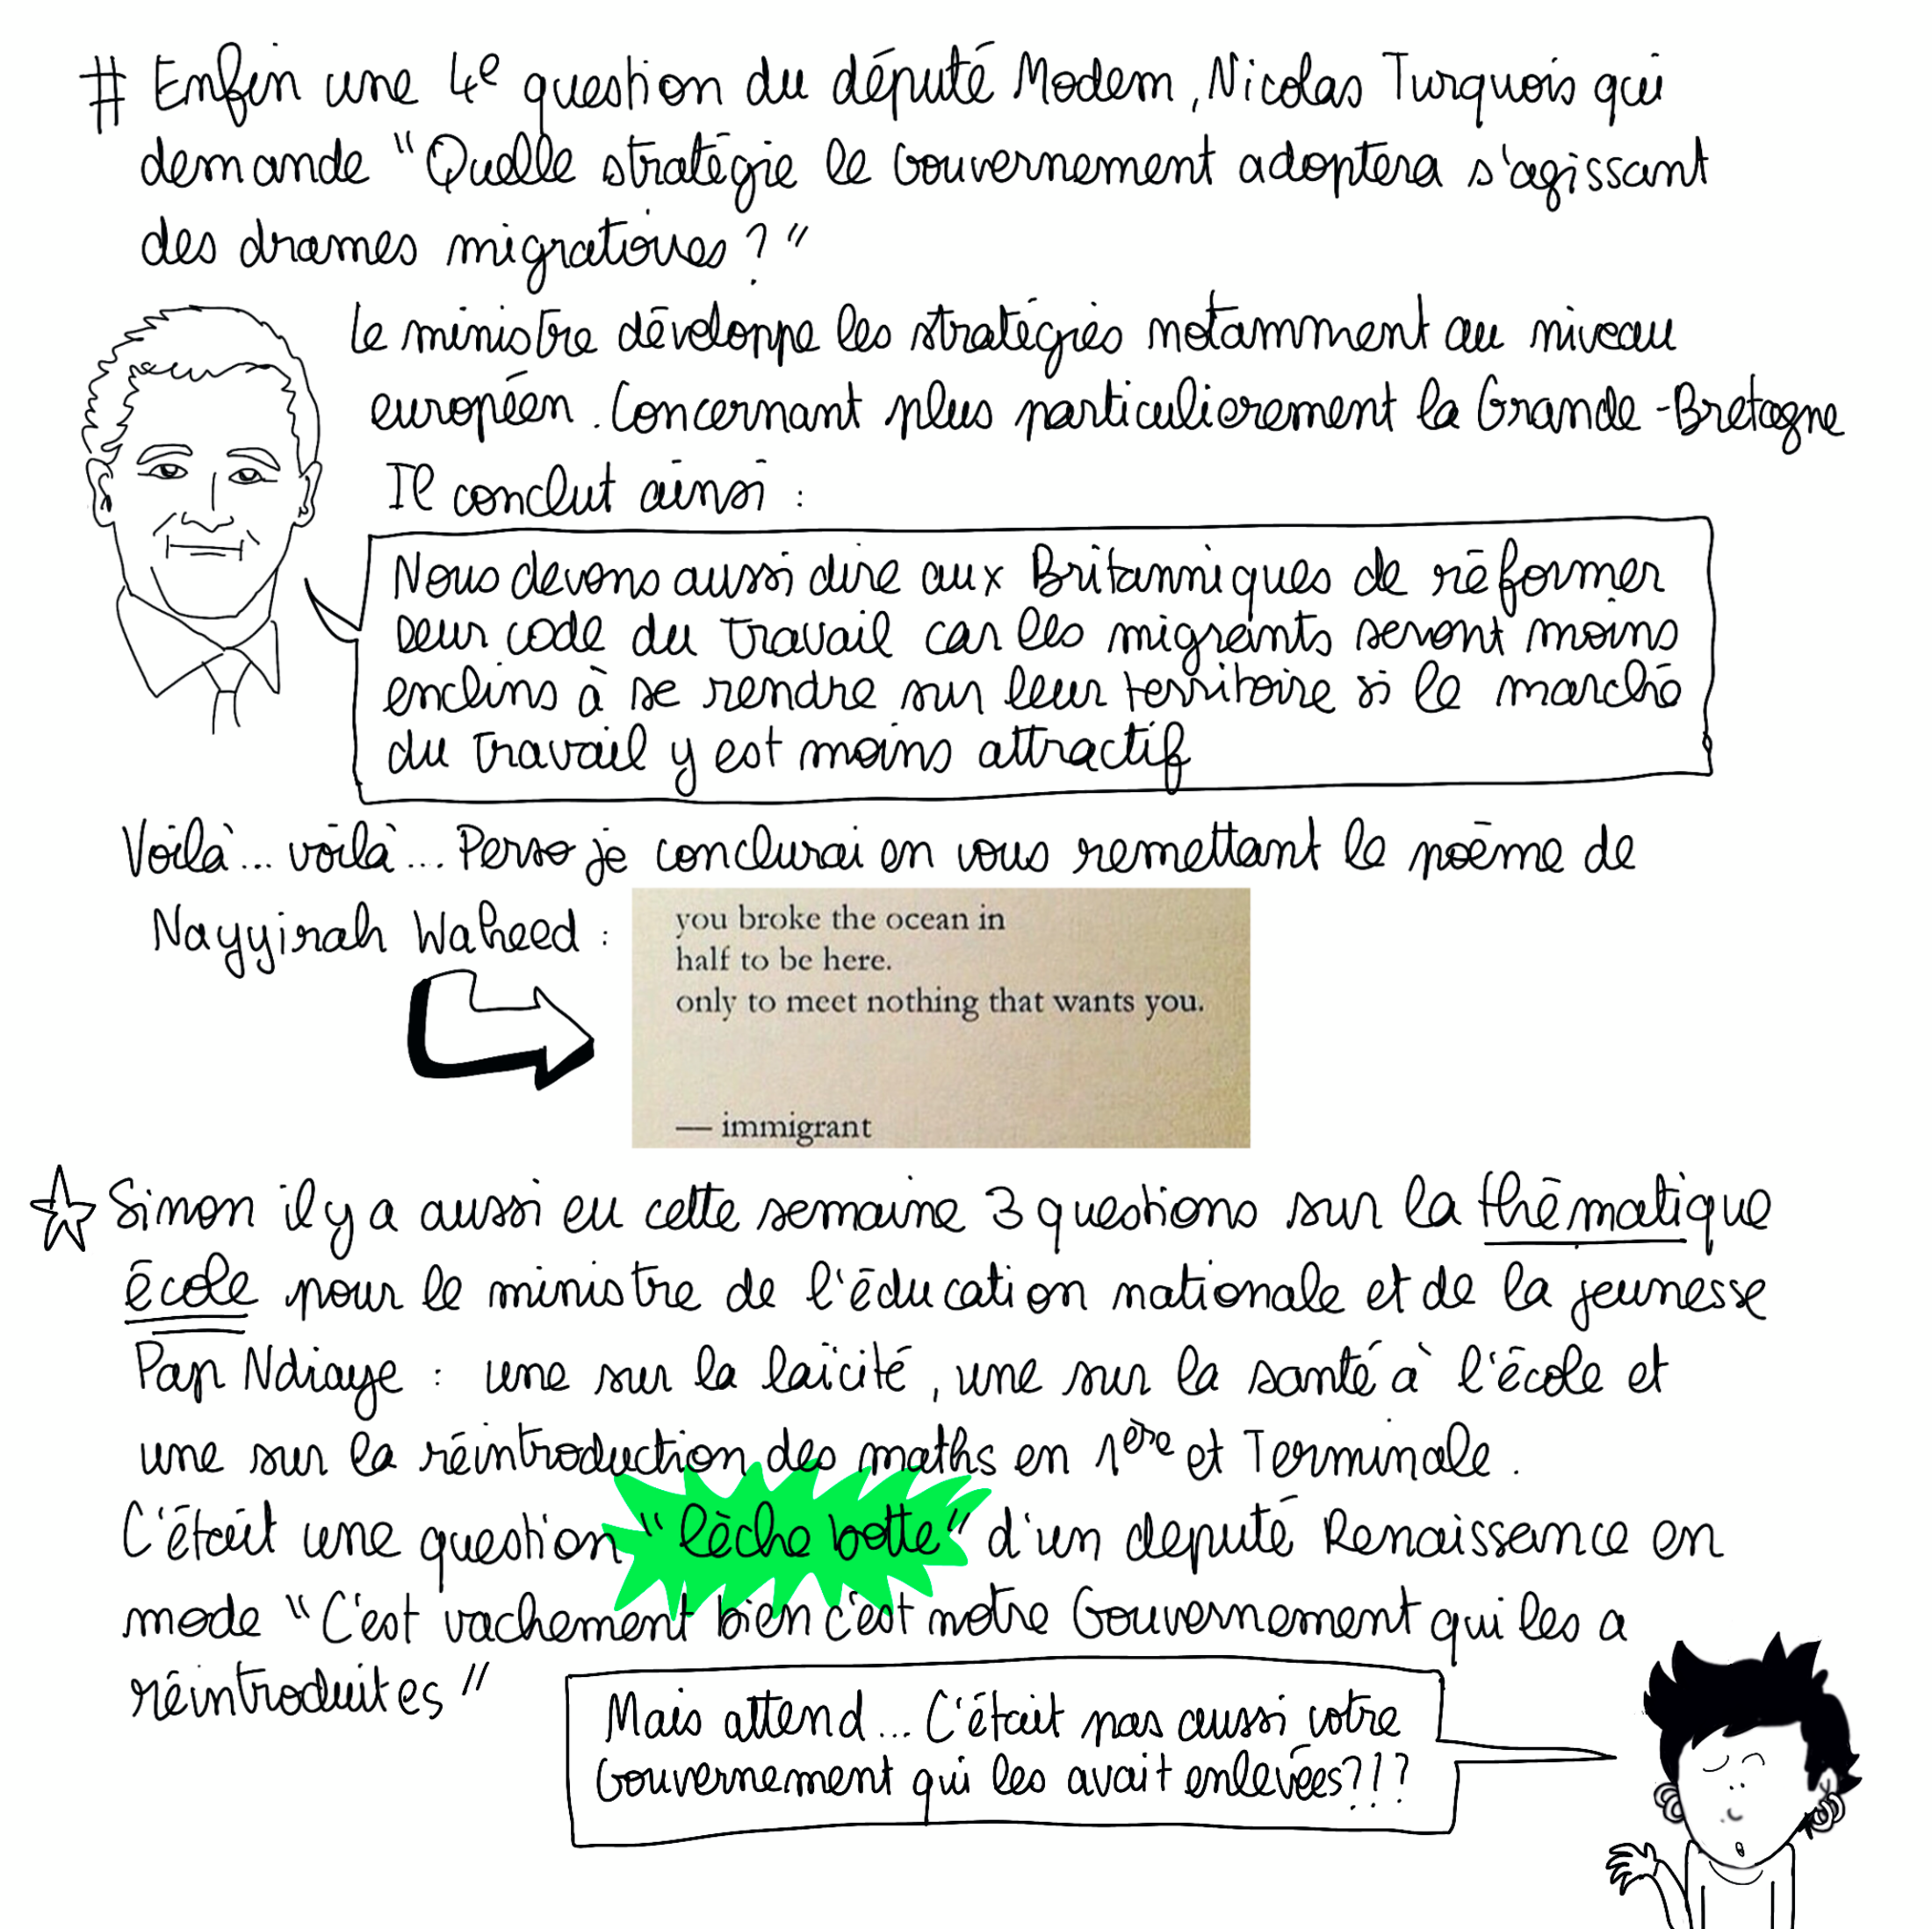 # Enfin une 4e question du député Modem, Nicolas Turquois qui
demande "Quelle stratégie le Gouvernement adoptera s'agissant
des drames migratoires ?"
Le ministre développe les stratégies notamment au niveau
européen. Concernant plus particulierement la Grande-Bretagne
Il conclut ainsi :
Nous devons aussi dire aux Britanniques de réformer
leur code du travail car les migrants seront moins
enclins à se rendre sur leur territoire si le marché
du travail y est moins attractif
Voilà... voilà... Perso je conclurai en vous remettant le poème de
Nayyirah Waheed :
you broke the ocean in
half to be here.
only to meet nothing that wants you.
— immigrant
Sinon il y a aussi eu cette semaine 3 questions sur la thématique
école pour le ministre de l'éducation nationale et de la jeunesse
Pap Ndiaye : une sur la laïcité, une sur la santé à l'école et
une sur la réintroduction des maths en 1ère et Terminale.
C'était une question "lèche botte" d'un deputé Renaissance en
mode "C'est vachement bien c'est notre Gouvernement qui les a
réintroduites"
Mais attend... C'était pas aussi votre
Gouvernement qui les avait enlevées?!?